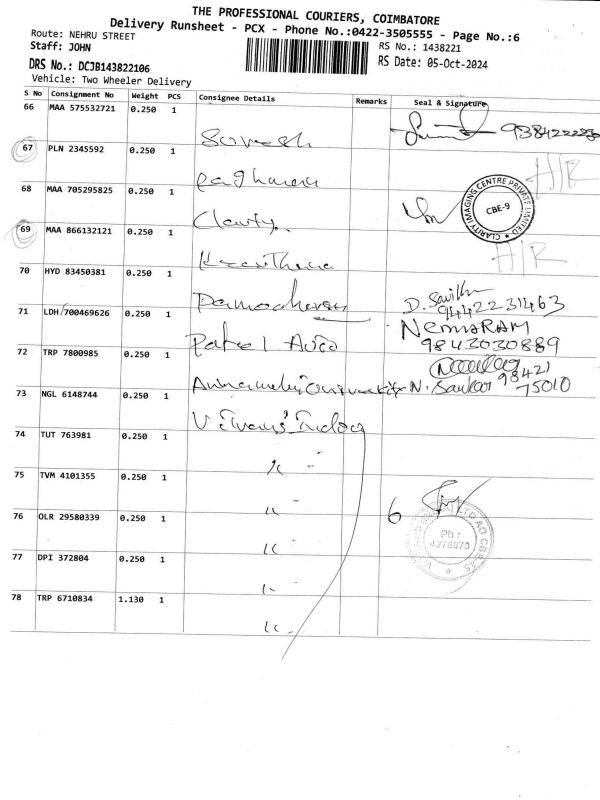 THE PROFESSIONAL COURIERS, COIMBATORE
Delivery Runsheet - PCX - Phone No.:0422-3505555 - Page No.:6
Route: NEHRU STREET
RS No.: 1438221
Staff: JOHN
RS Date: 05-Oct-2024
DRS No.: DCJB143822106
Vehicle: Two Wheeler Delivery
S No Consignment No Weight PCS Consignee Details Remarks Seal & Signature
66 MAA 575532721 0.250 1 Suresh
67 PLN 2345592 0.250 1 H/R
68 MAA 705295825 0.250 1 Clarity CLARITY IMAGING CENTRE PRIVATE LIMITED CBE-9
69 MAA 866132121 0.250 1 H/R
70 HYD 83450381 0.250 1 Damodharan 9442231463
71 LDH 700469626 0.250 1 Patel Auto NEMARAM 9843030889
72 TRP 7800985 0.250 1 N. Sankar 98421 75010
73 NGL 6148744 0.250 1
74 TUT 763981 0.250 1 "
75 TVM 4101355 0.250 1 "
76 OLR 29580339 0.250 1 " 6
77 DPI 372804 0.250 1 " Ph :
78 TRP 6710834 1.130 1 "